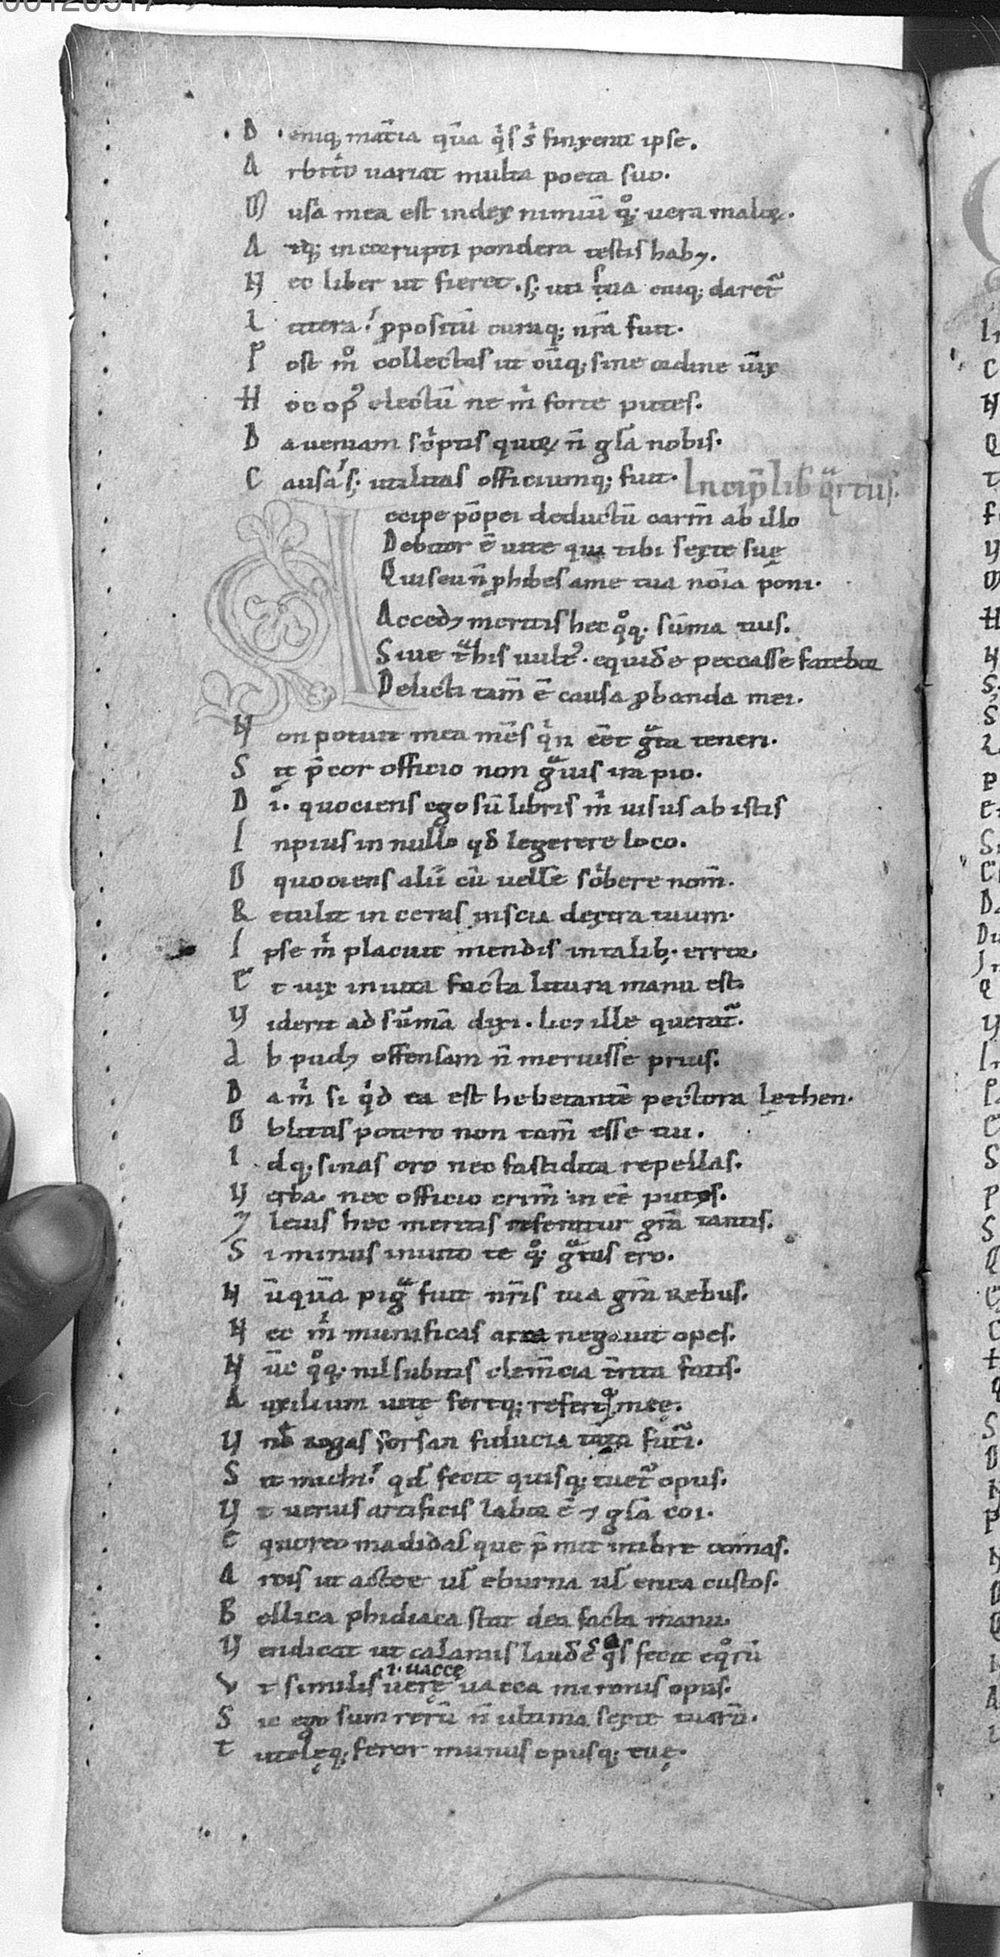 D eniq; mat̄ia qm̄a q̓s s̓ finxerat ipse.
A rbit̓o uariat multa poeta suo.
M usa mea est index nimiū q̊q; uera malorꝝ.
A tq; incorrupti pondera testis habꝫ.
N ec liber ut fieret. sꝫ uti sua cuiq; daret᷑
L ittera. ꝓpositū curaq; nr̄a fuit.
P ost m̊ collectas ut cūq; sine ordine iūx
H oc opꝰ electū ne m̓ forte putes.
D a ueniam sc̓ptis quorꝝ n̄ gl̄a nobis.
C ausa sꝫ utilitas officiumq; fuit. Incip̄ lib q̓rtus.
A ccipe pōpei deductū carm̄ ab illo
Debitor ē uite qui tibi sexte suę
Qui seu n̄ ꝓhibes a me tua noīa poni.
Accedꝫ meritis hec q̊q; sūma tuis.
Siue t̓his uult᷑. equidē peccasse fatebor
Delicti tam̄ ē causa ꝓbanda mei.
N on potuit mea mēs q̓n eēt gͣta teneri.
S it p̄cor officio non gͣuis ira pio.
O i. quociens ego sū libris m̓ uisus ab istis
I npius in nullo qđ legerere loco.
O quociens aliū cū uelle sc̓bere nom̄.
R etulit in ceras inscia dextra tuum.
I pse m̓ placuit mendis in talibꝫ. error
E t uix inuita facta litura manu est.
V iderit ad sūmā dixi. licꝫ ille querat᷑.
A b pudꝫ offensam n̄ meruisse prius.
D a m̓ si q̓d ea est hebetantē pectora lethen.
O blitus potero non tam̄ esse tui.
I dq; sinas oro nec fastidita repellas.
V erba. nec officio crim̄ in eē putes.
Z leuis hec meritis referatur gr̄a tantis.
S i minus inuito te q̊q; gͣtus ero.
N ūquā pigͣ fuit nr̄is tua gr̄a rebus.
N ec m̓ munificas arca negauit opes.
N ūc q̊q; nil subitis clem̄cia t̄rita fatis.
A uxilium uite fertq; refertq; meę.
V nđ rogas forsan fiducia tāta futr̄i.
S it michi. qđ fecit quisq; tuet᷑ opus.
V t uenus artificis labor ē ⁊ gl̄a coi.
E quoreo madidas que p̄mit imbre comas.
A rcis ut actee ul̄ eburna ul̄ erea custos.
B ellica phidiaca stat dea facta manu.
V endicat ut calamis laudē q̊s fecit eq̊rū
V t similis uerę i. uaccę uacca mironis opus.
S ic ego sum rerū n̄ ultima sexte tuarū.
T utelęq; feror munus opusq; tuę.